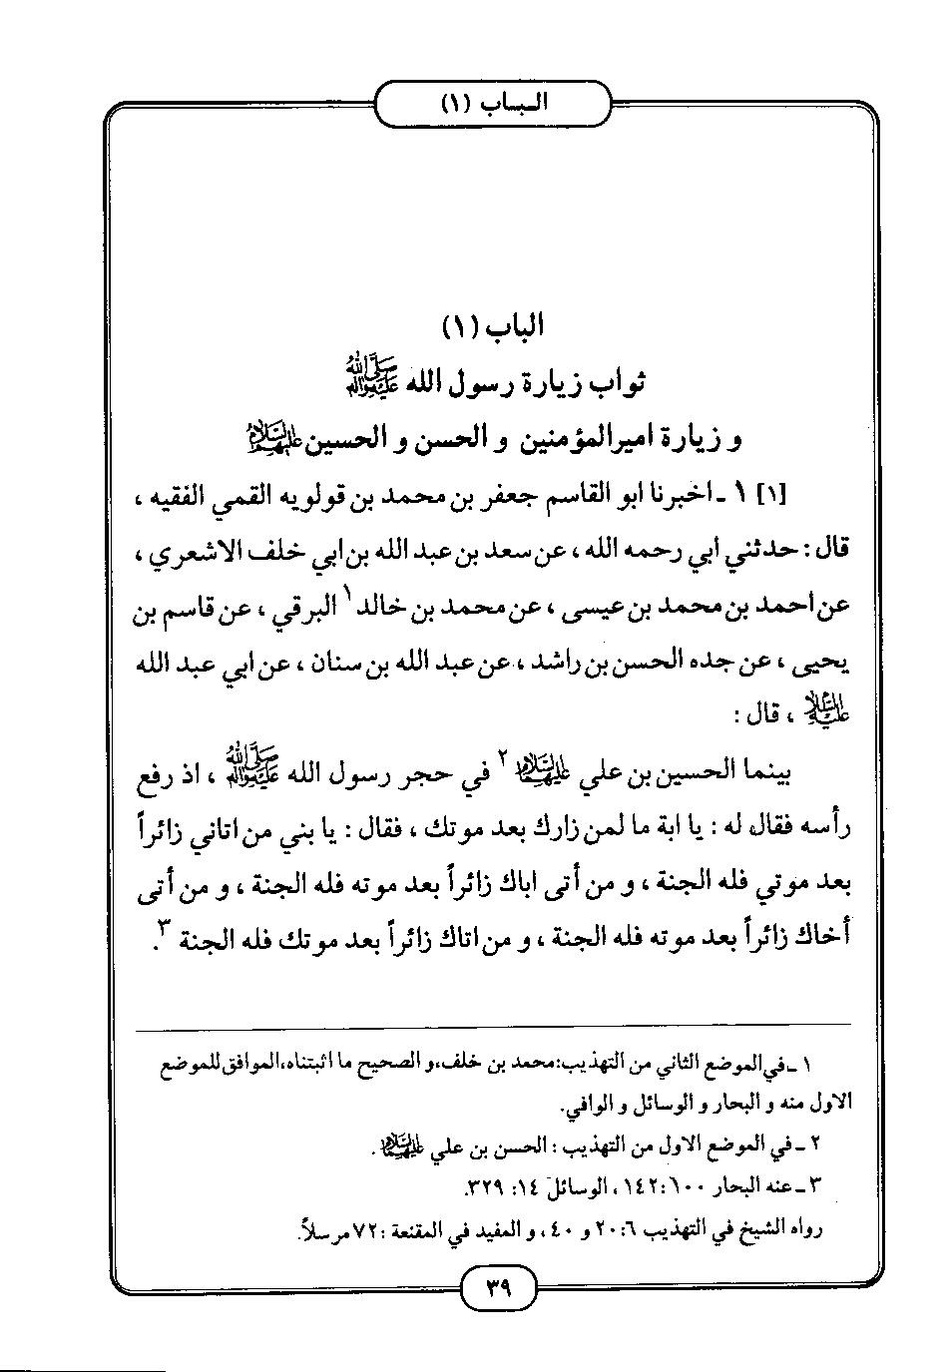 الـبـاب (١)
الباب (١)
ثواب زيارة رسول الله صلى الله عليه وآله
و زيارة اميرالمؤمنين و الحسن و الحسين عليهم السلام
[١] ١ ـ اخبرنا ابو القاسم جعفر بن محمد بن قولويه القمي الفقيه ،
قال : حدثني ابي رحمه الله ، عن سعد بن عبد الله بن ابي خلف الاشعري ،
عن احمد بن محمد بن عيسى ، عن محمد بن خالد ١ البرقي ، عن قاسم بن
يحيى ، عن جده الحسن بن راشد ، عن عبد الله بن سنان ، عن ابي عبد الله
عليه السلام ، قال :
بينما الحسين بن علي عليهما السلام ٢ في حجر رسول الله صلى الله عليه وآله ، اذ رفع
رأسه فقال له : يا ابة ما لمن زارك بعد موتك ، فقال : يا بني من اتاني زائراً
بعد موتي فله الجنة ، و من أتى اباك زائراً بعد موته فله الجنة ، و من أتى
أخاك زائراً بعد موته فله الجنة ، و من اتاك زائراً بعد موتك فله الجنة ٣.
١ ـ في الموضع الثاني من التهذيب: محمد بن خلف، و الصحيح ما اثبتناه، الموافق للموضع
الاول منه و البحار و الوسائل و الوافي.
٢ ـ في الموضع الاول من التهذيب : الحسن بن علي عليهما السلام .
٣ ـ عنه البحار ١٠٠: ١٤٢ ، الوسائل ١٤: ٣٢٩.
رواه الشيخ في التهذيب ٦: ٢٠ و ٤٠ ، و المفيد في المقنعة : ٧٢ مرسلاً.
٣٩